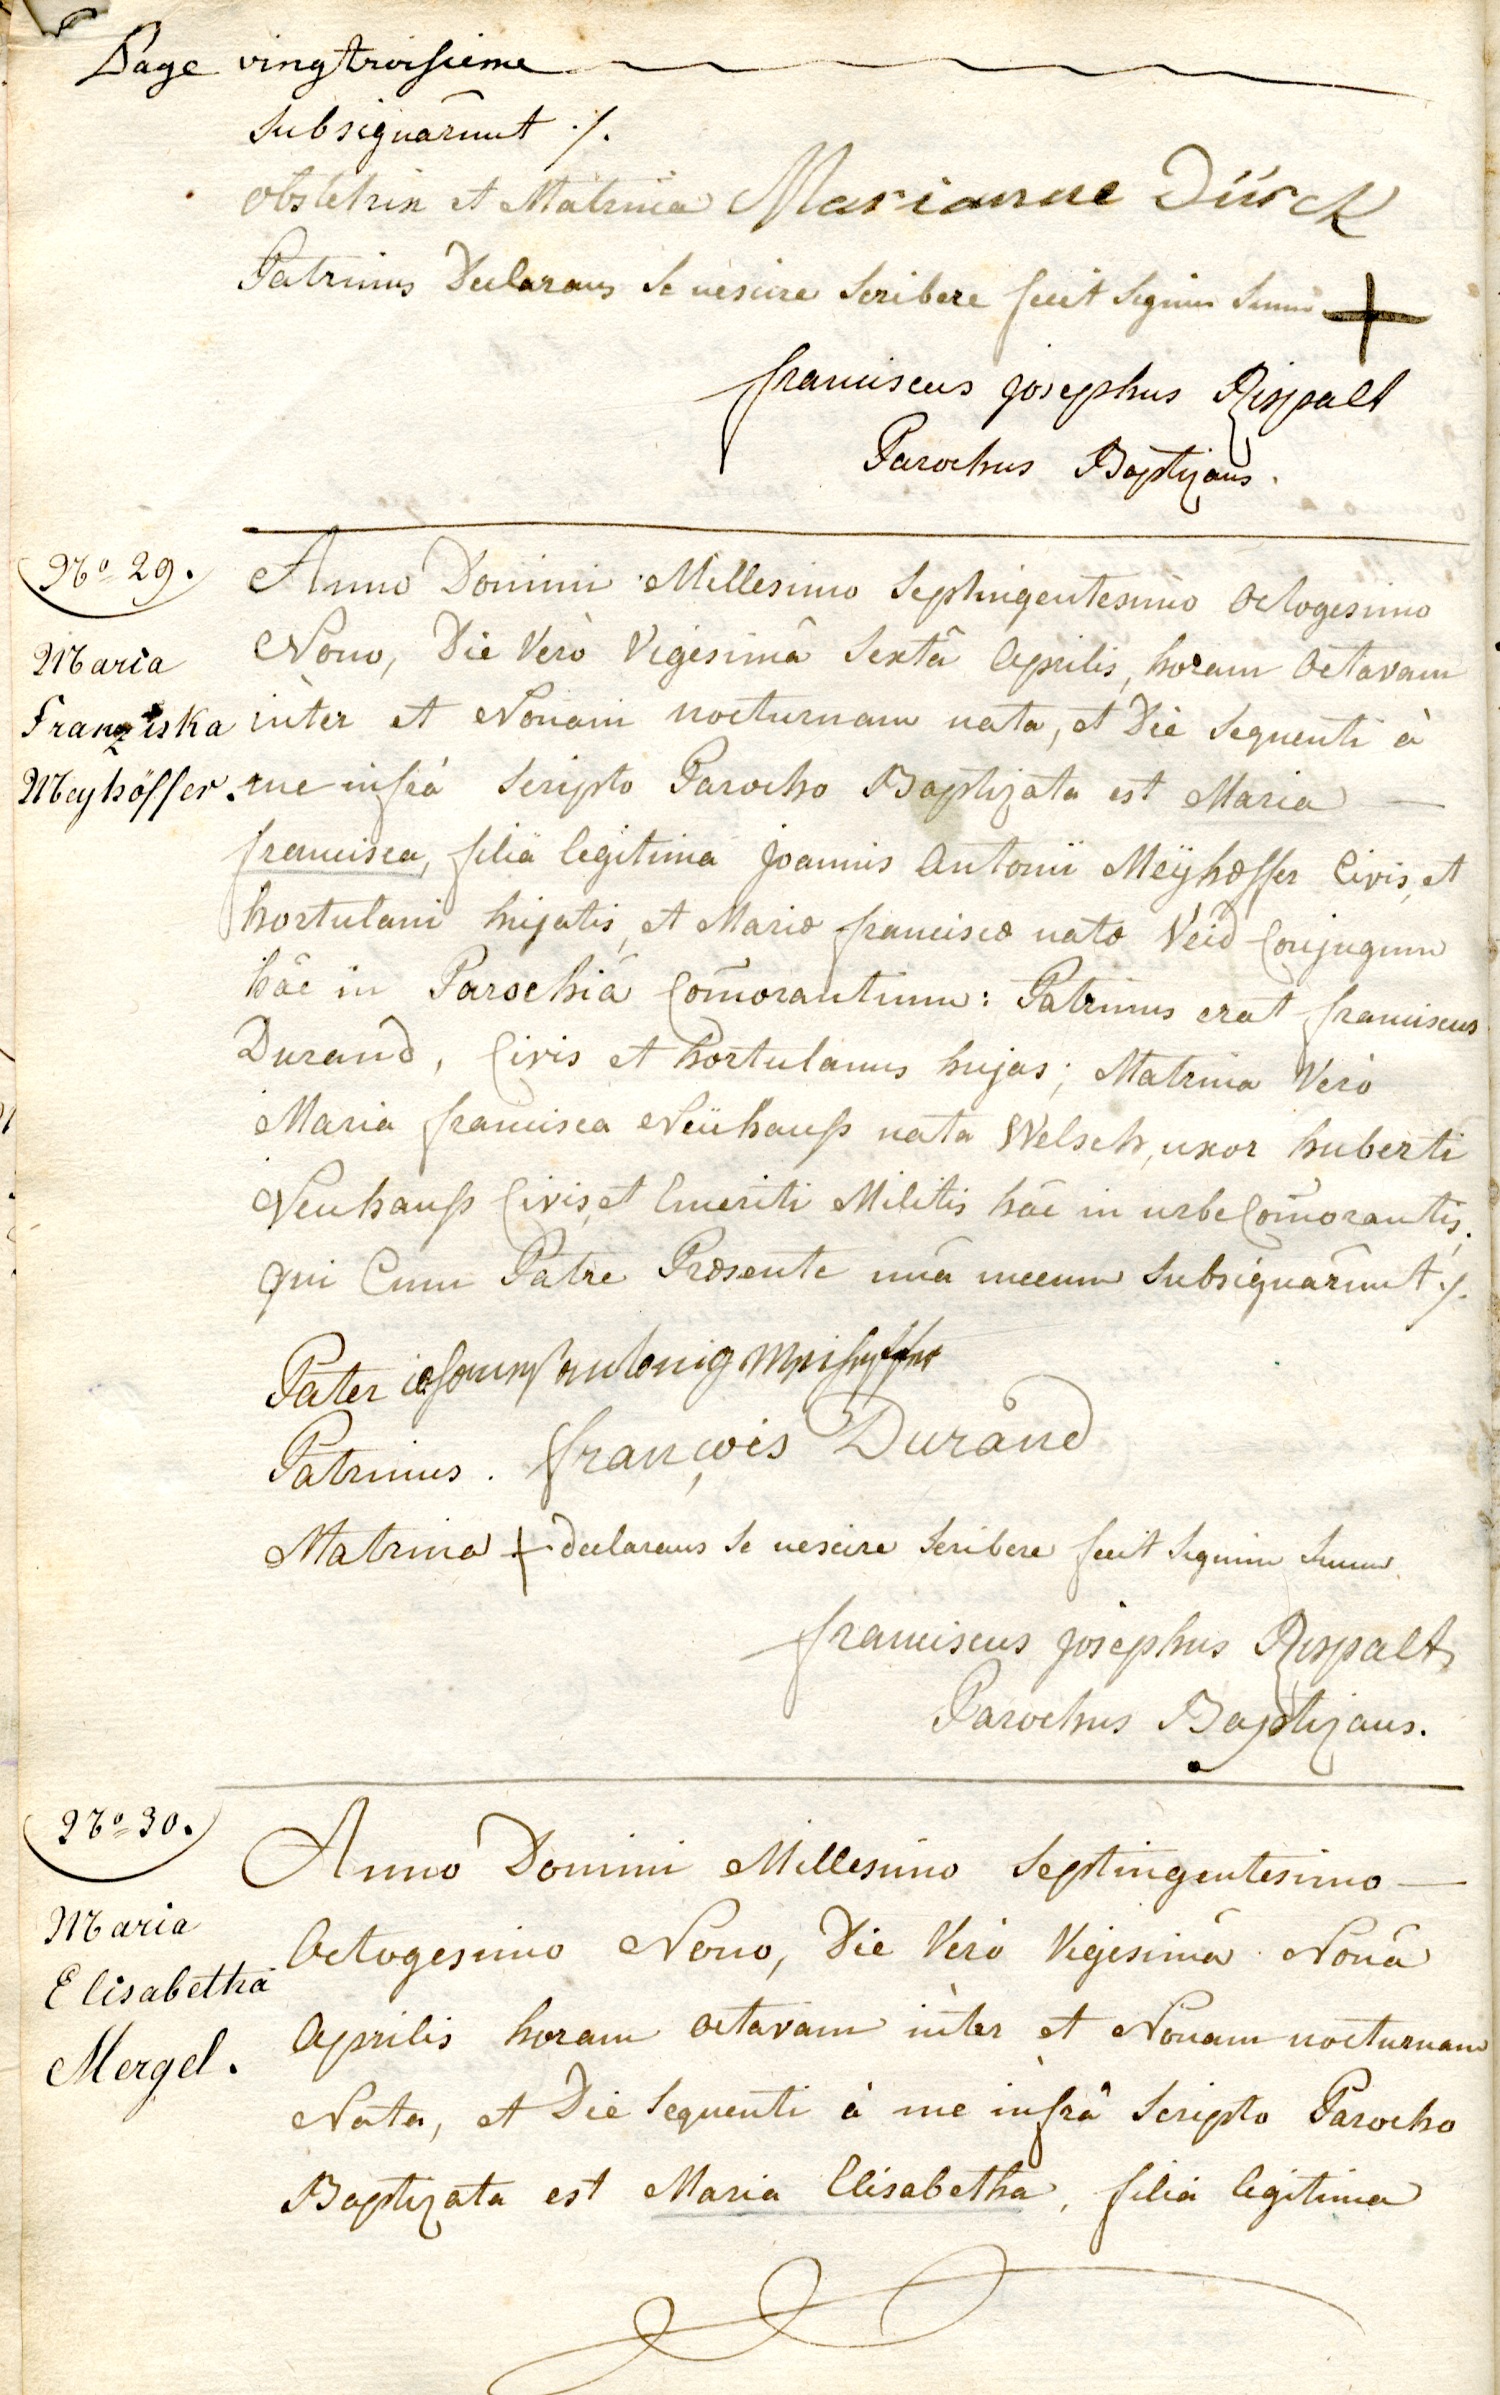 Page vingtroisieme
subsignarũnt ./.
obstetrix et Matrina Marianne Dürck
Patrinus Declarans se nescire scribere fecit signum suum +
franciscus josephus Rispalt
Parochus Baptizans.
No 29.
Maria
Franziska
Meyhöffer.
Anno Domini Millesimo Septingentesimo Octogesimo
Nono, Die Verò Vigesimâ Sextâ Aprilis, horam Octavam
intèr et Nonam nocturnam nata, et Die sequenti à
me infrà scripto Parocho Baptizata est Maria —
francisca, filia legitima joannis Antonii Meÿhoffer Civis, et
hortulani hujatis, et Mariæ franciscæ natæ Veid Conjugum
hâc in Parochiâ Com̃orantium: Patrinus erat franciscus
Durand, Civis et hortulanus hujas; Matrina Verò
Maria francisca Neühauß nata Welsch, uxor huberti
Neuhauß Civis, et Emeriti Militis hâc in urbe Com̃orantis;
qui Cum Patre Præsente unâ mecum subsignarũnt ./.
Pater
Patrinus. françois Durand
Matrina + declarans se nescire scribere fecit signum suum.
franciscus josephus Rispalt
Parochus Baptizans.
No 30.
Maria
Elisabetha
Mergel.
Anno Domini Millesimo Septingentesimo —
Octogesimo Nono, Die Verò Vigesimâ Nonâ
Aprilis horam octavam intèr et Nonam nocturnam
Nata, et Die sequenti à me infrà scripto Parocho
Baptizata est Maria Elisabetha, filia legitima